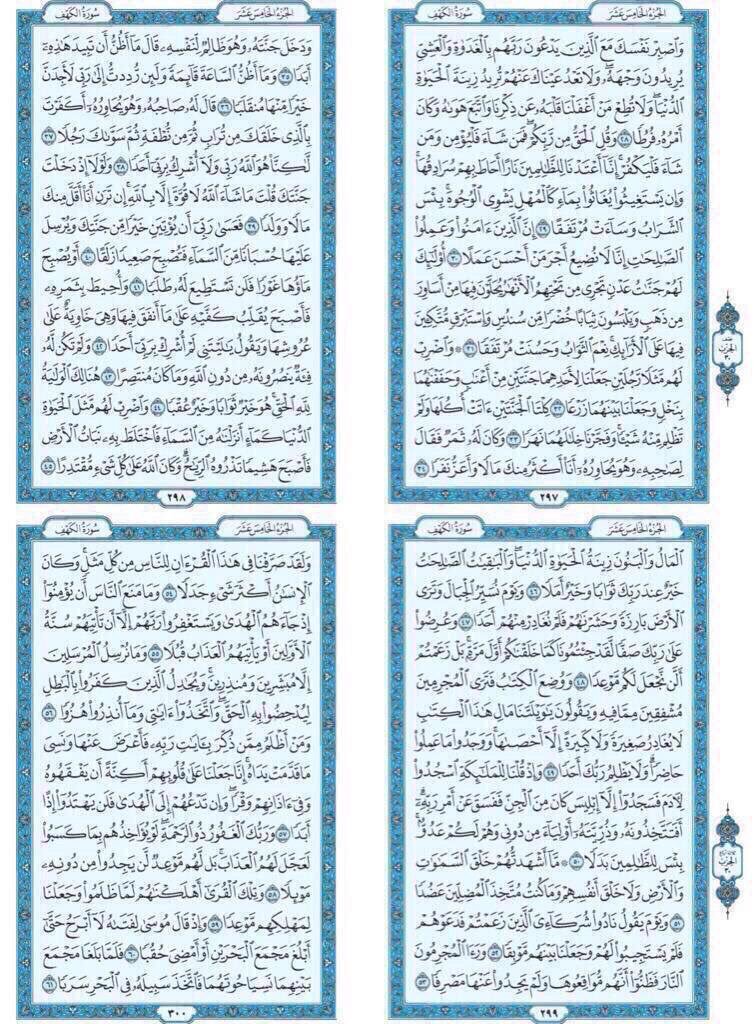 سُورَةُ الكَهْفِ
الجُزْءُ الخَامِسَ عَشَرَ
وَٱصْبِرْ نَفْسَكَ مَعَ ٱلَّذِينَ يَدْعُونَ رَبَّهُم بِٱلْغَدَوٰةِ وَٱلْعَشِىِّ
يُرِيدُونَ وَجْهَهُۥ وَلَا تَعْدُ عَيْنَاكَ عَنْهُمْ تُرِيدُ زِينَةَ ٱلْحَيَوٰةِ
ٱلدُّنْيَا وَلَا تُطِعْ مَنْ أَغْفَلْنَا قَلْبَهُۥ عَن ذِكْرِنَا وَٱتَّبَعَ هَوَىٰهُ وَكَانَ
أَمْرُهُۥ فُرُطًا ٢٨ وَقُلِ ٱلْحَقُّ مِن رَّبِّكُمْ فَمَن شَآءَ فَلْيُؤْمِن وَمَن
شَآءَ فَلْيَكْفُرْ إِنَّآ أَعْتَدْنَا لِلظَّـٰلِمِينَ نَارًا أَحَاطَ بِهِمْ سُرَادِقُهَا
وَإِن يَسْتَغِيثُوا۟ يُغَاثُوا۟ بِمَآءٍ كَٱلْمُهْلِ يَشْوِى ٱلْوُجُوهَ بِئْسَ
ٱلشَّرَابُ وَسَآءَتْ مُرْتَفَقًا ٢٩ إِنَّ ٱلَّذِينَ ءَامَنُوا۟ وَعَمِلُوا۟
ٱلصَّـٰلِحَـٰتِ إِنَّا لَا نُضِيعُ أَجْرَ مَنْ أَحْسَنَ عَمَلًا ٣٠ أُو۟لَـٰٓئِكَ
لَهُمْ جَنَّـٰتُ عَدْنٍ تَجْرِى مِن تَحْتِهِمُ ٱلْأَنْهَـٰرُ يُحَلَّوْنَ فِيهَا مِنْ أَسَاوِرَ
مِن ذَهَبٍ وَيَلْبَسُونَ ثِيَابًا خُضْرًا مِّن سُندُسٍ وَإِسْتَبْرَقٍ مُّتَّكِـِٔينَ
فِيهَا عَلَى ٱلْأَرَآئِكِ نِعْمَ ٱلثَّوَابُ وَحَسُنَتْ مُرْتَفَقًا ٣١ ۞ وَٱضْرِبْ
لَهُم مَّثَلًا رَّجُلَيْنِ جَعَلْنَا لِأَحَدِهِمَا جَنَّتَيْنِ مِنْ أَعْنَـٰبٍ وَحَفَفْنَـٰهُمَا
بِنَخْلٍ وَجَعَلْنَا بَيْنَهُمَا زَرْعًا ٣٢ كِلْتَا ٱلْجَنَّتَيْنِ ءَاتَتْ أُكُلَهَا وَلَمْ
تَظْلِم مِّنْهُ شَيْـًٔا وَفَجَّرْنَا خِلَـٰلَهُمَا نَهَرًا ٣٣ وَكَانَ لَهُۥ ثَمَرٌ فَقَالَ
لِصَـٰحِبِهِۦ وَهُوَ يُحَاوِرُهُۥٓ أَنَا۠ أَكْثَرُ مِنكَ مَالًا وَأَعَزُّ نَفَرًا ٣٤
٢٩٧
سُورَةُ الكَهْفِ
الجُزْءُ الخَامِسَ عَشَرَ
وَدَخَلَ جَنَّتَهُۥ وَهُوَ ظَالِمٌ لِّنَفْسِهِۦ قَالَ مَآ أَظُنُّ أَن تَبِيدَ هَـٰذِهِۦٓ
أَبَدًا ٣٥ وَمَآ أَظُنُّ ٱلسَّاعَةَ قَآئِمَةً وَلَئِن رُّدِدتُّ إِلَىٰ رَبِّى لَأَجِدَنَّ
خَيْرًا مِّنْهَا مُنقَلَبًا ٣٦ قَالَ لَهُۥ صَاحِبُهُۥ وَهُوَ يُحَاوِرُهُۥٓ أَكَفَرْتَ
بِٱلَّذِى خَلَقَكَ مِن تُرَابٍ ثُمَّ مِن نُّطْفَةٍ ثُمَّ سَوَّىٰكَ رَجُلًا ٣٧
لَّـٰكِنَّا۠ هُوَ ٱللَّهُ رَبِّى وَلَآ أُشْرِكُ بِرَبِّىٓ أَحَدًا ٣٨ وَلَوْلَآ إِذْ دَخَلْتَ
جَنَّتَكَ قُلْتَ مَا شَآءَ ٱللَّهُ لَا قُوَّةَ إِلَّا بِٱللَّهِ إِن تَرَنِ أَنَا۠ أَقَلَّ مِنكَ
مَالًا وَوَلَدًا ٣٩ فَعَسَىٰ رَبِّىٓ أَن يُؤْتِيَنِ خَيْرًا مِّن جَنَّتِكَ وَيُرْسِلَ
عَلَيْهَا حُسْبَانًا مِّنَ ٱلسَّمَآءِ فَتُصْبِحَ صَعِيدًا زَلَقًا ٤٠ أَوْ يُصْبِحَ
مَآؤُهَا غَوْرًا فَلَن تَسْتَطِيعَ لَهُۥ طَلَبًا ٤١ وَأُحِيطَ بِثَمَرِهِۦ
فَأَصْبَحَ يُقَلِّبُ كَفَّيْهِ عَلَىٰ مَآ أَنفَقَ فِيهَا وَهِىَ خَاوِيَةٌ عَلَىٰ
عُرُوشِهَا وَيَقُولُ يَـٰلَيْتَنِى لَمْ أُشْرِكْ بِرَبِّىٓ أَحَدًا ٤٢ وَلَمْ تَكُن لَّهُۥ
فِئَةٌ يَنصُرُونَهُۥ مِن دُونِ ٱللَّهِ وَمَا كَانَ مُنتَصِرًا ٤٣ هُنَالِكَ ٱلْوَلَـٰيَةُ
لِلَّهِ ٱلْحَقِّ هُوَ خَيْرٌ ثَوَابًا وَخَيْرٌ عُقْبًا ٤٤ وَٱضْرِبْ لَهُم مَّثَلَ ٱلْحَيَوٰةِ
ٱلدُّنْيَا كَمَآءٍ أَنزَلْنَـٰهُ مِنَ ٱلسَّمَآءِ فَٱخْتَلَطَ بِهِۦ نَبَاتُ ٱلْأَرْضِ
فَأَصْبَحَ هَشِيمًا تَذْرُوهُ ٱلرِّيَـٰحُ وَكَانَ ٱللَّهُ عَلَىٰ كُلِّ شَىْءٍ مُّقْتَدِرًا ٤٥
٢٩٨
سُورَةُ الكَهْفِ
الجُزْءُ الخَامِسَ عَشَرَ
ٱلْمَالُ وَٱلْبَنُونَ زِينَةُ ٱلْحَيَوٰةِ ٱلدُّنْيَا وَٱلْبَـٰقِيَـٰتُ ٱلصَّـٰلِحَـٰتُ
خَيْرٌ عِندَ رَبِّكَ ثَوَابًا وَخَيْرٌ أَمَلًا ٤٦ وَيَوْمَ نُسَيِّرُ ٱلْجِبَالَ وَتَرَى
ٱلْأَرْضَ بَارِزَةً وَحَشَرْنَـٰهُمْ فَلَمْ نُغَادِرْ مِنْهُمْ أَحَدًا ٤٧ وَعُرِضُوا۟
عَلَىٰ رَبِّكَ صَفًّا لَّقَدْ جِئْتُمُونَا كَمَا خَلَقْنَـٰكُمْ أَوَّلَ مَرَّةٍۭ بَلْ زَعَمْتُمْ
أَلَّن نَّجْعَلَ لَكُم مَّوْعِدًا ٤٨ وَوُضِعَ ٱلْكِتَـٰبُ فَتَرَى ٱلْمُجْرِمِينَ
مُشْفِقِينَ مِمَّا فِيهِ وَيَقُولُونَ يَـٰوَيْلَتَنَا مَالِ هَـٰذَا ٱلْكِتَـٰبِ
لَا يُغَادِرُ صَغِيرَةً وَلَا كَبِيرَةً إِلَّآ أَحْصَىٰهَا وَوَجَدُوا۟ مَا عَمِلُوا۟
حَاضِرًا وَلَا يَظْلِمُ رَبُّكَ أَحَدًا ٤٩ وَإِذْ قُلْنَا لِلْمَلَـٰٓئِكَةِ ٱسْجُدُوا۟
لِـَٔادَمَ فَسَجَدُوٓا۟ إِلَّآ إِبْلِيسَ كَانَ مِنَ ٱلْجِنِّ فَفَسَقَ عَنْ أَمْرِ رَبِّهِۦٓ
أَفَتَتَّخِذُونَهُۥ وَذُرِّيَّتَهُۥٓ أَوْلِيَآءَ مِن دُونِى وَهُمْ لَكُمْ عَدُوٌّۢ
بِئْسَ لِلظَّـٰلِمِينَ بَدَلًا ٥٠ ۞ مَّآ أَشْهَدتُّهُمْ خَلْقَ ٱلسَّمَـٰوَٰتِ
وَٱلْأَرْضِ وَلَا خَلْقَ أَنفُسِهِمْ وَمَا كُنتُ مُتَّخِذَ ٱلْمُضِلِّينَ عَضُدًا
٥١ وَيَوْمَ يَقُولُ نَادُوا۟ شُرَكَآءِىَ ٱلَّذِينَ زَعَمْتُمْ فَدَعَوْهُمْ
فَلَمْ يَسْتَجِيبُوا۟ لَهُمْ وَجَعَلْنَا بَيْنَهُم مَّوْبِقًا ٥٢ وَرَءَا ٱلْمُجْرِمُونَ
ٱلنَّارَ فَظَنُّوٓا۟ أَنَّهُم مُّوَاقِعُوهَا وَلَمْ يَجِدُوا۟ عَنْهَا مَصْرِفًا ٥٣
٢٩٩
سُورَةُ الكَهْفِ
الجُزْءُ الخَامِسَ عَشَرَ
وَلَقَدْ صَرَّفْنَا فِى هَـٰذَا ٱلْقُرْءَانِ لِلنَّاسِ مِن كُلِّ مَثَلٍ وَكَانَ
ٱلْإِنسَـٰنُ أَكْثَرَ شَىْءٍ جَدَلًا ٥٤ وَمَا مَنَعَ ٱلنَّاسَ أَن يُؤْمِنُوٓا۟
إِذْ جَآءَهُمُ ٱلْهُدَىٰ وَيَسْتَغْفِرُوا۟ رَبَّهُمْ إِلَّآ أَن تَأْتِيَهُمْ سُنَّةُ
ٱلْأَوَّلِينَ أَوْ يَأْتِيَهُمُ ٱلْعَذَابُ قُبُلًا ٥٥ وَمَا نُرْسِلُ ٱلْمُرْسَلِينَ
إِلَّا مُبَشِّرِينَ وَمُنذِرِينَ وَيُجَـٰدِلُ ٱلَّذِينَ كَفَرُوا۟ بِٱلْبَـٰطِلِ
لِيُدْحِضُوا۟ بِهِ ٱلْحَقَّ وَٱتَّخَذُوٓا۟ ءَايَـٰتِى وَمَآ أُنذِرُوا۟ هُزُوًا ٥٦
وَمَنْ أَظْلَمُ مِمَّن ذُكِّرَ بِـَٔايَـٰتِ رَبِّهِۦ فَأَعْرَضَ عَنْهَا وَنَسِىَ
مَا قَدَّمَتْ يَدَاهُ إِنَّا جَعَلْنَا عَلَىٰ قُلُوبِهِمْ أَكِنَّةً أَن يَفْقَهُوهُ
وَفِىٓ ءَاذَانِهِمْ وَقْرًا وَإِن تَدْعُهُمْ إِلَى ٱلْهُدَىٰ فَلَن يَهْتَدُوٓا۟ إِذًا
أَبَدًا ٥٧ وَرَبُّكَ ٱلْغَفُورُ ذُو ٱلرَّحْمَةِ لَوْ يُؤَاخِذُهُم بِمَا كَسَبُوا۟
لَعَجَّلَ لَهُمُ ٱلْعَذَابَ بَل لَّهُم مَّوْعِدٌ لَّن يَجِدُوا۟ مِن دُونِهِۦ
مَوْئِلًا ٥٨ وَتِلْكَ ٱلْقُرَىٰٓ أَهْلَكْنَـٰهُمْ لَمَّا ظَلَمُوا۟ وَجَعَلْنَا
لِمَهْلِكِهِم مَّوْعِدًا ٥٩ وَإِذْ قَالَ مُوسَىٰ لِفَتَىٰهُ لَآ أَبْرَحُ حَتَّىٰٓ
أَبْلُغَ مَجْمَعَ ٱلْبَحْرَيْنِ أَوْ أَمْضِىَ حُقُبًا ٦٠ فَلَمَّا بَلَغَا مَجْمَعَ
بَيْنِهِمَا نَسِيَا حُوتَهُمَا فَٱتَّخَذَ سَبِيلَهُۥ فِى ٱلْبَحْرِ سَرَبًا ٦١
٣٠٠